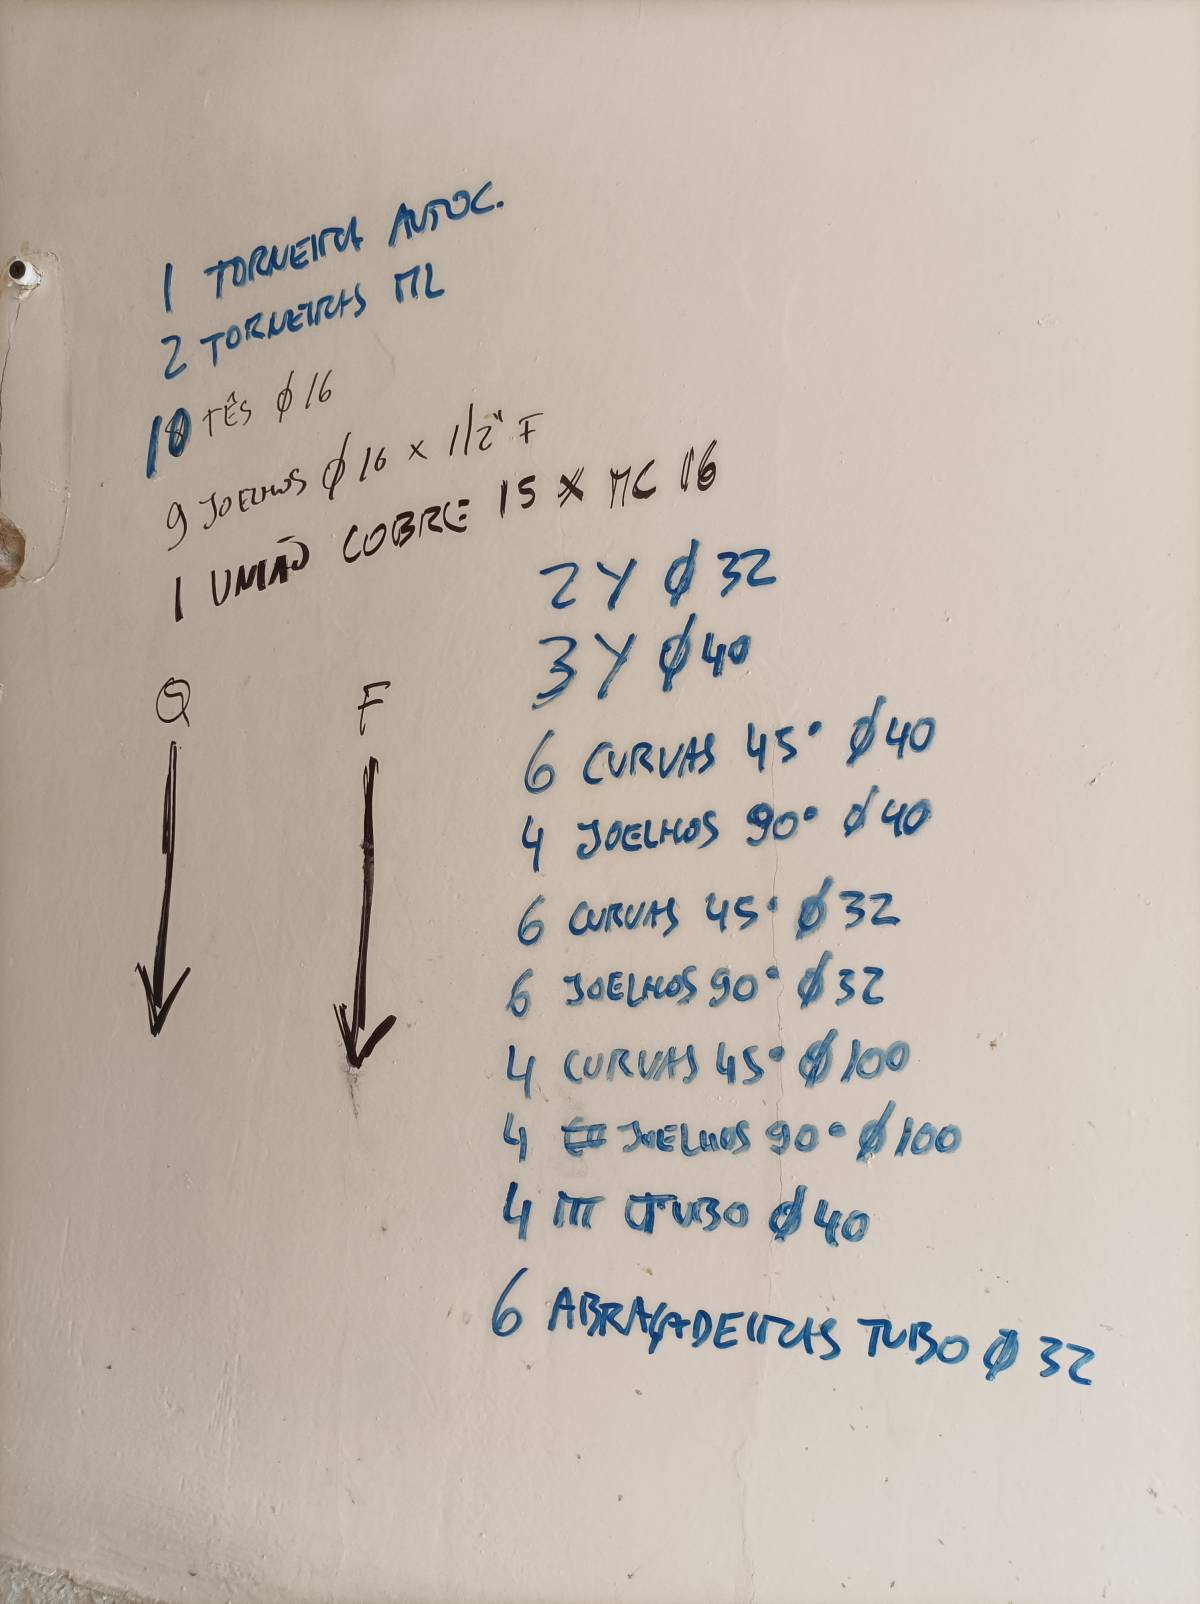 1 TORNEIRA AUTOC.
2 TORNEIRAS ML
10 TÊS Ø 16
9 JOELHOS Ø 16 x 1/2" F
1 UNIÃO COBRE 15 X MC 16
2 Y Ø 32
3 Y Ø 40
Q F
6 CURVAS 45° Ø 40
4 JOELHOS 90° Ø 40
6 CURVAS 45° Ø 32
6 JOELHOS 90° Ø 32
4 CURVAS 45° Ø 100
4 JOELHOS 90° Ø 100
4 m TUBO Ø 40
6 ABRAÇADEIRAS TUBO Ø 32